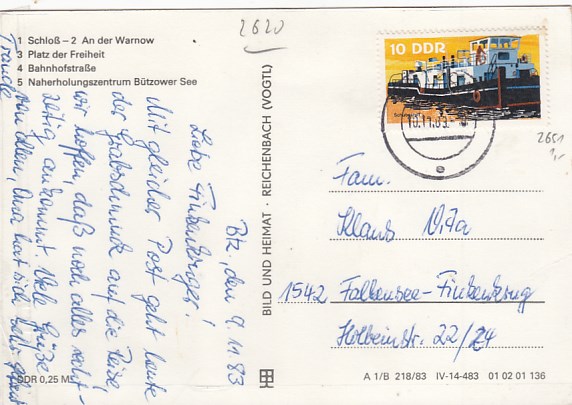 2620
1 Schloß – 2 An der Warnow
3 Platz der Freiheit
4 Bahnhofstraße
5 Naherholungszentrum Bützower See
Btz., den 9.11.83
Liebe Finkenkrüger!
Mit gleicher Post geht heute
der Grabschmuck auf die Reise,
wir hoffen, daß noch alles recht-
zeitig ankommt. Viele Grüße
von allen, Oma hat sich sehr gefreut
Traude
DDR 0,25 M
BILD UND HEIMAT · REICHENBACH (VOGTL)
10 DDR
2651
1,-
Fam.
Klaus
1542 Falkensee-Finkenkrug
Holbeinstr. 22/24
A 1/B 218/83 IV-14-483 01 02 01 136